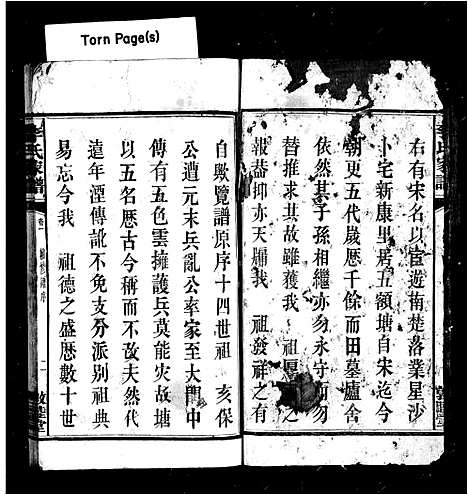 Torn Page(s)
李氏家譜
右有宋名以宦遊南楚落業星沙
卜宅新康里居五領塘自宋迄今
朝更五代歲厯千餘而田墓廬舍
依然其子孫相繼亦勿永守而勿
替推求其故雖獲我 祖厚
報蓋抑亦天賜我 祖發祥之有
自歟覽譜原序十四世祖 亥保
公遭元末兵亂公率家至大門中
傳有五色雲擁護兵莫能灾故塘
以五名厯古今稱而不改夫然代
遠年湮傳訛不免支分派別祖典
易忘今我 祖德之盛厯數十世
李氏家譜
卷一
序
二
敦睦堂